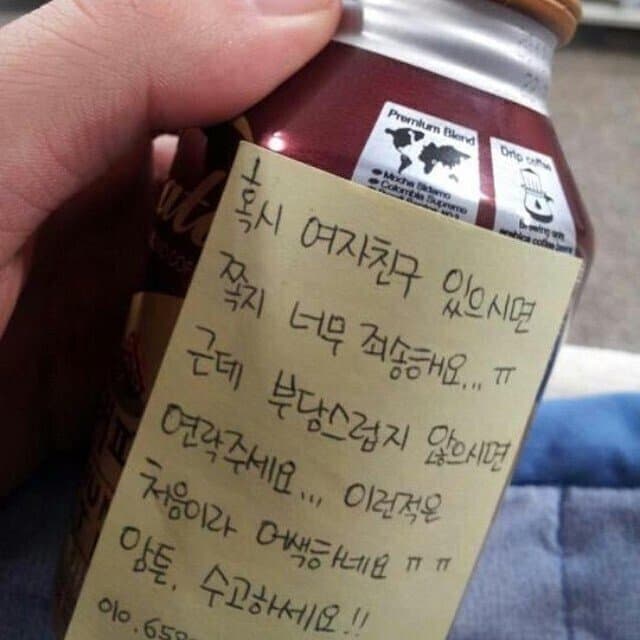 Premium Blend
Mocha Sidamo
Colombia Supremo
Drip coffee
혹시 여자친구 있으시면
쪽지 너무 죄송해요... ㅠ
근데 부담스럽지 않으시면
연락주세요... 이런적은
처음이라 어색하네요 ㅠㅠ
암튼, 수고하세요!!
010.65